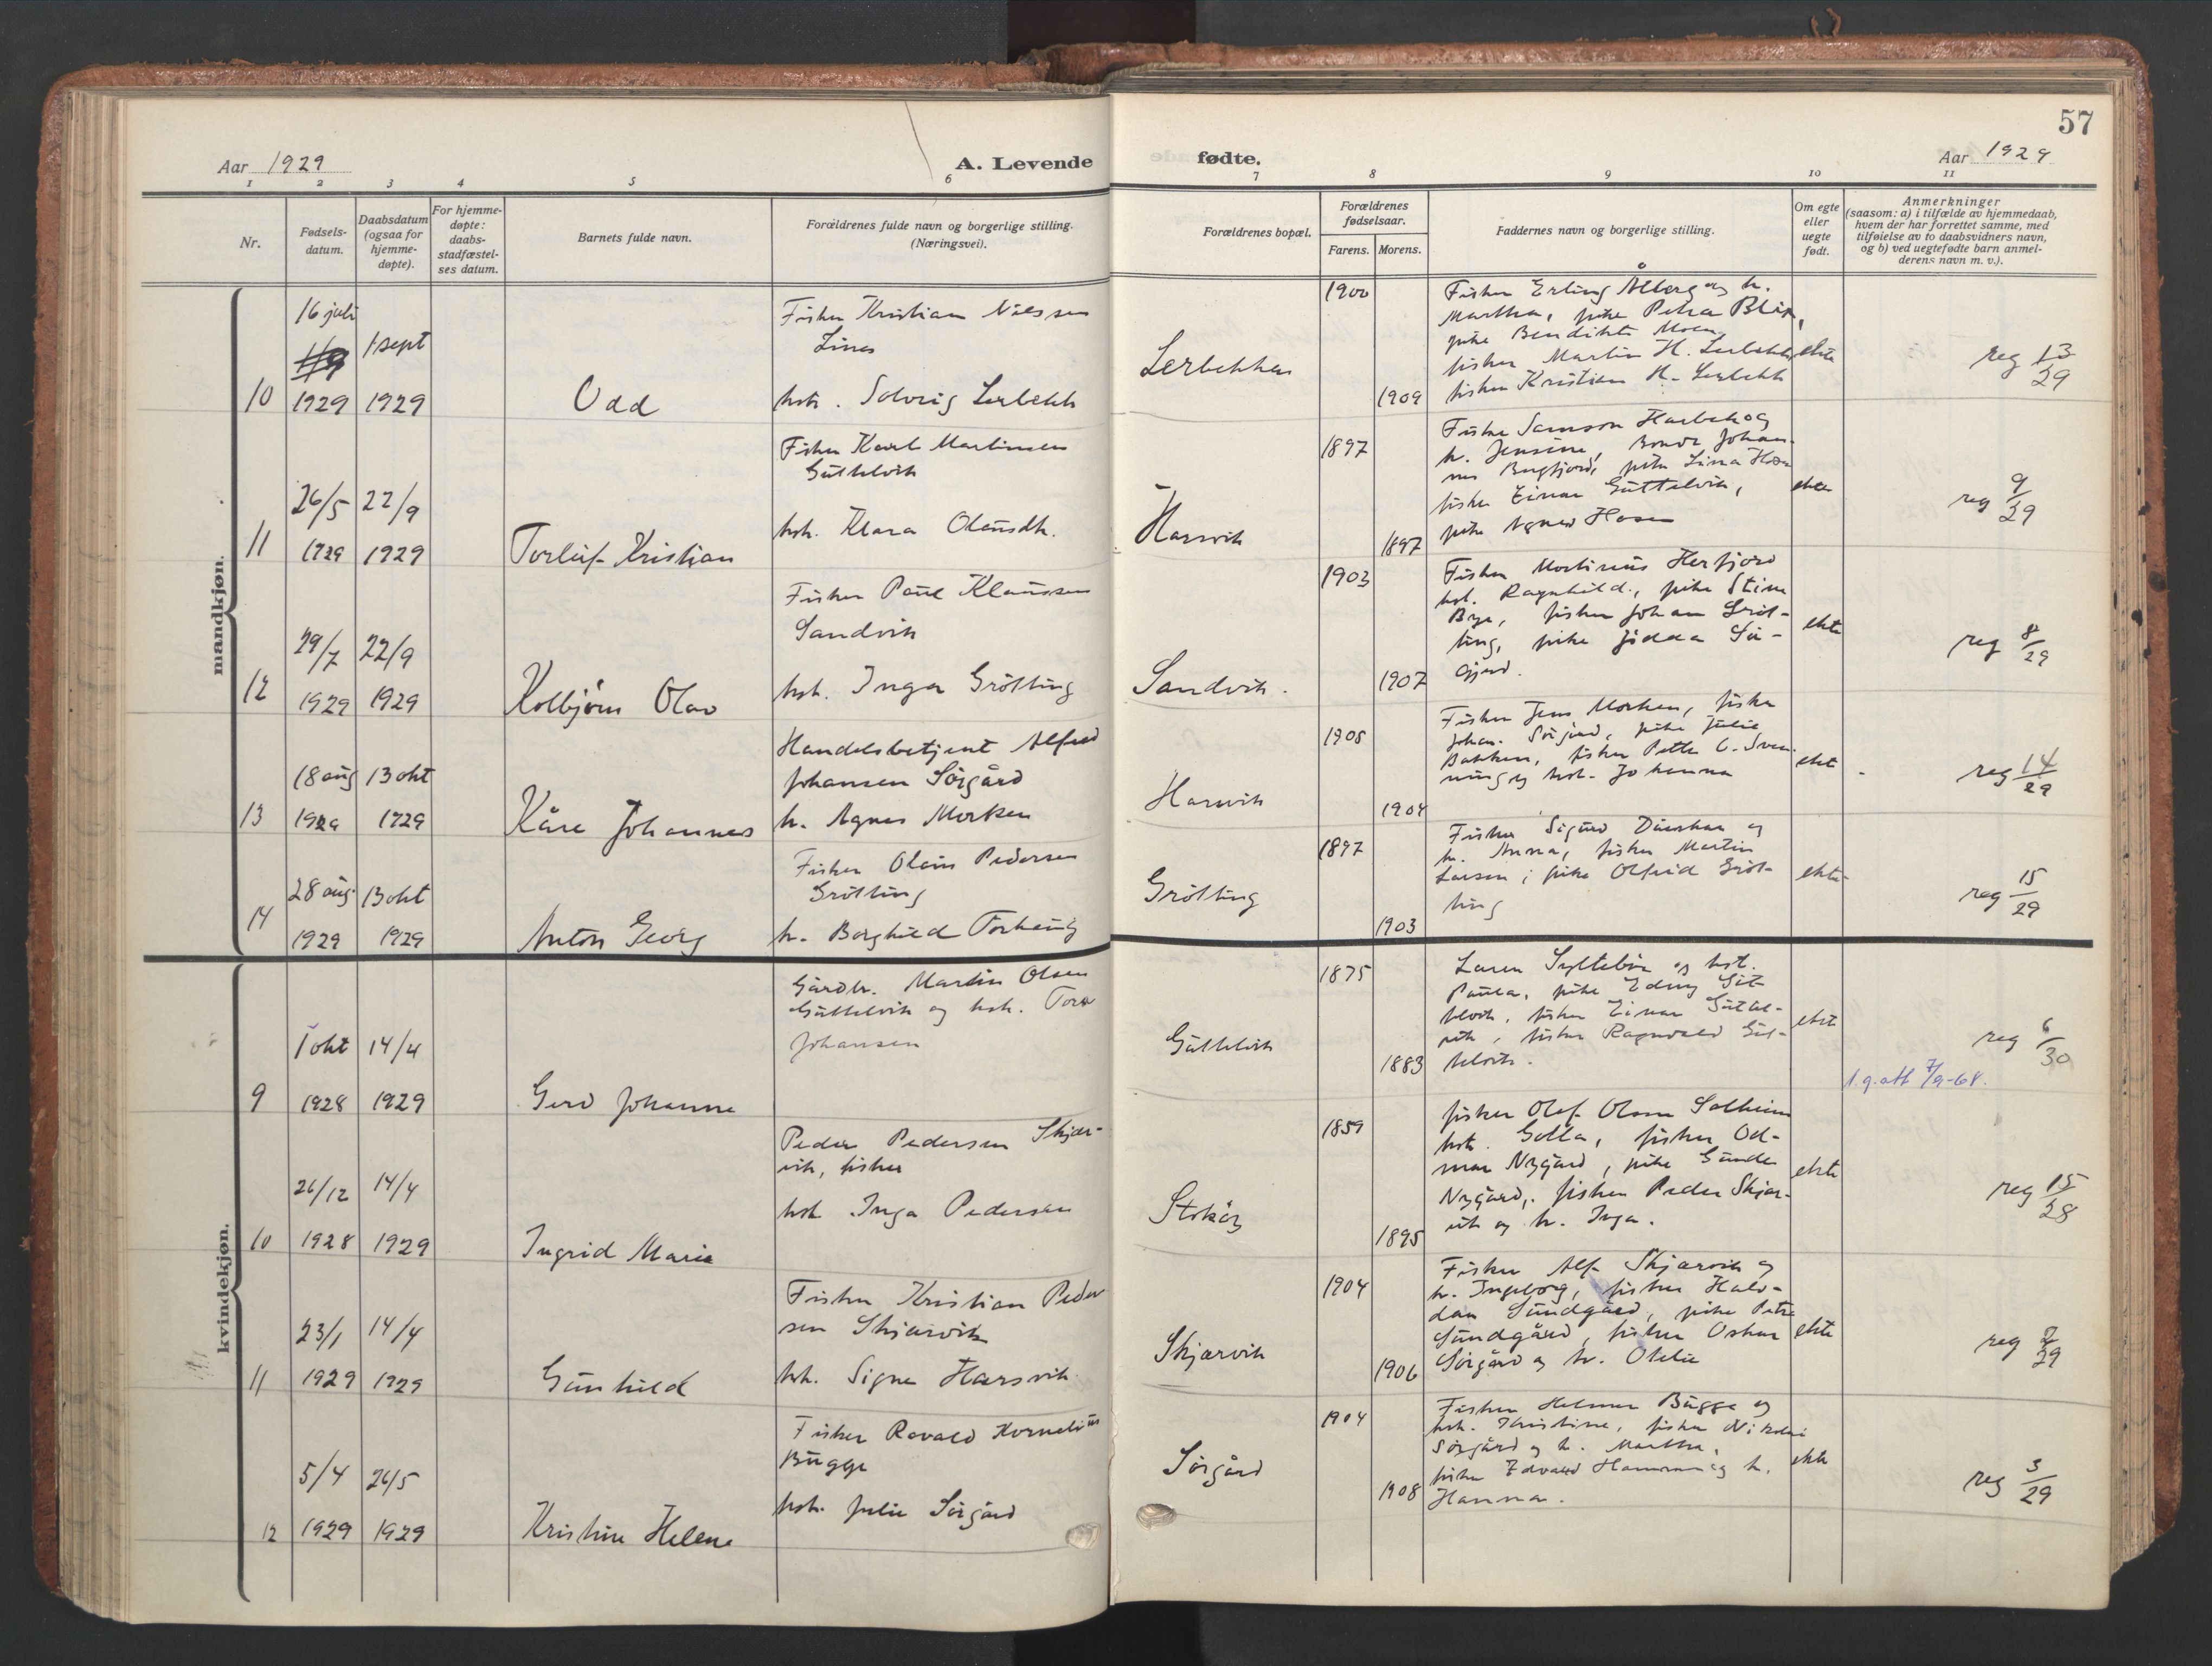 57
Aar 1929
A. Levende
fødte.
Aar 1929
1 2 3 4 5 6 7 8 9 10 11
Nr.
Fødsels-
datum.
Daabsdatum
(ogsaa for
hjemme-
døpte).
For hjemme-
døpte:
daabs-
stadfæstel-
ses datum.
Barnets fulde navn.
Forældrenes fulde navn og borgerlige stilling.
(Næringsvei).
Forældrenes bopæl.
Forældrenes
fødselsaar.
Farens. Morens.
Faddernes navn og borgerlige stilling.
Om egte
eller
uegte
født.
Anmerkninger
(saasom: a) i tilfælde av hjemmedaab,
hvem der har forrettet samme, med
tilføielse av to daabsvidners navn,
og b) ved uegtefødte barn anmel-
derens navn m. v.).
mandkjøn.
10
16 juli
1929
1 sept
1929
Odd
Fisker Kristian Nilssen
Lines
hstr. Solveig Lerbekk
Lerbekken
1900
1909
Fisker Erling Åberg og h.
Martha, pike Petra Blix,
pike Bendikte Moen,
fisker Martin H. Lerbekk
fisker Kristian H. Lerbekk
ekte
reg 13/29
11
26/5
1929
22/9
1929
Torleif Kristian
Fisker Karl Martinsen
Guttelvik
hstr. Klara Olausdtr.
Harsvik
1897
1897
Fisker Samson Harbak og
h. Jensine, Bonde Johan-
nes Bugfjord, pike Lina
fisker Einar Guttelvik,
pike Agnes Hosen
ekte
reg 9/29
12
29/7
1929
22/9
1929
Kolbjörn Olav
Fisker Paul Klaussen
Sandvik
hstr. Inga Grötting
Sandvik.
1903
1907
Fisker Martinus Herfjord
hst. Ragnhild, pike Stina
Bye, fisker Johan Gröt-
ting, pike Jödda Sör-
gjerd.
ekte
reg 8/29
13
18 aug
1929
13 okt
1929
Kåre Johannes
Handelsbetjent Alfred
Johansen Sörgård
h. Agnes Morken
Harsvik
1905
1904
Fisker Jens Morken, fisker
Johan Sörgård, pike Julie
Bakken, fisker Petter C. Sven-
ning og hst. Johanna
ekte
reg 14/29
14
28 aug
1929
13 okt
1929
Anton Georg
Fisker Olaus Pedersen
Grötting
h. Borghild
Grötting
1897
1903
Fisker Sigurd og
h. Anna, fisker Martin
Larsen, pike Olfrid Gröt-
ting
ekte
reg 15/29
kvindekjøn.
9
1 okt
1928
14/4
1929
Gerd Johanne
Gårdbr. Martin Olsen
Guttelvik og hst. Tora
Johansen
Guttelvik
1875
1883
og hst.
Paula, pike Gut-
telvik, fisker Einar Guttel-
vik, fisker Ragnvald Gut-
telvik.
ekte
reg 6/30
1. g. att 7/9-68.
10
26/12
1928
14/4
1929
Ingrid Marie
Peder Pedersen Skjær-
vik, fisker
hst Inga Pedersen
Stoköy
1859
1895
fisker Olaf Olsen Solheim
hst. Golla, fisker Od-
mar Nygård, pike Gunda
Nygård, fisker Peder Skjær-
vik og h. Inga.
ekte
reg 15/28
11
23/1
1929
14/4
1929
Gunhild
Fisker Kristian Peder
sen Skjærvik
hst. Signe Harsvik
Skjærvik
1904
1906
Fisker Alf Skjærvik og
h. Ingeborg, fisker Halv-
dan Sundgård, pike Petra
Sundgård, fisker Oskar
Sörgård og h. Otelie
ekte
reg 2/29
12
5/4
1929
26/5
1929
Kristine Helene
Fisker Ravald Kornelius
Bugge
hst. Julie Sörgård
Sörgård
1904
1908
Fisker Helmer Bugge og
hst. Kristine, fisker Nikolai
Sörgård og h. Martha,
fisker Edvard Hammer og h.
Hanna.
ekte
reg 3/29